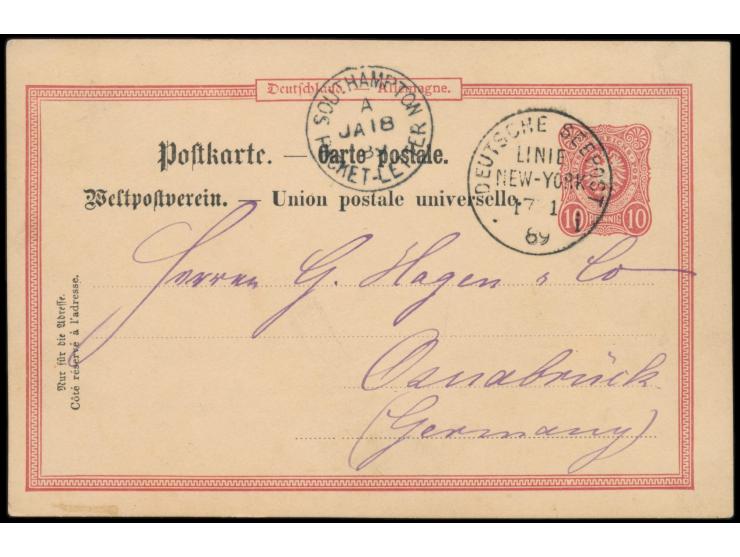 Deutschland. — Allemagne.
SOUTHAMPTON
A
JA 18
89
PACKET-LETTER
DEUTSCHE SEEPOST
LINIE
NEW-YORK
17 1
89
I
10 PFENNIG 10
Postkarte. — Carte postale.
Weltpostverein. — Union postale universelle.
Nur für die Adresse.
Côté réservé à l'adresse.
Herren G. Hagen & Co
Osnabrück
(Germany)